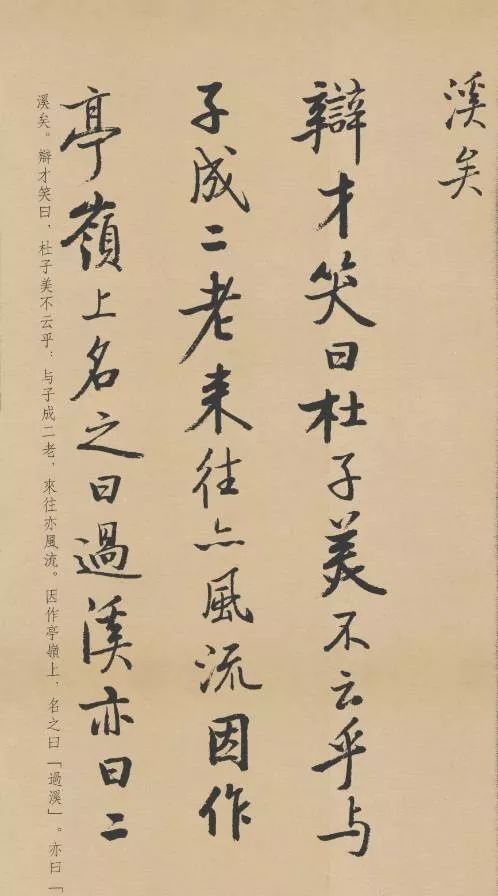 溪矣
辯才笑曰杜子美不云乎与
子成二老来往亦風流因作
亭嶺上名之曰過溪亦曰二
溪矣。辯才笑曰,杜子美不云乎:与子成二老,來往亦風流。因作亭嶺上,名之曰「過溪」。亦曰「